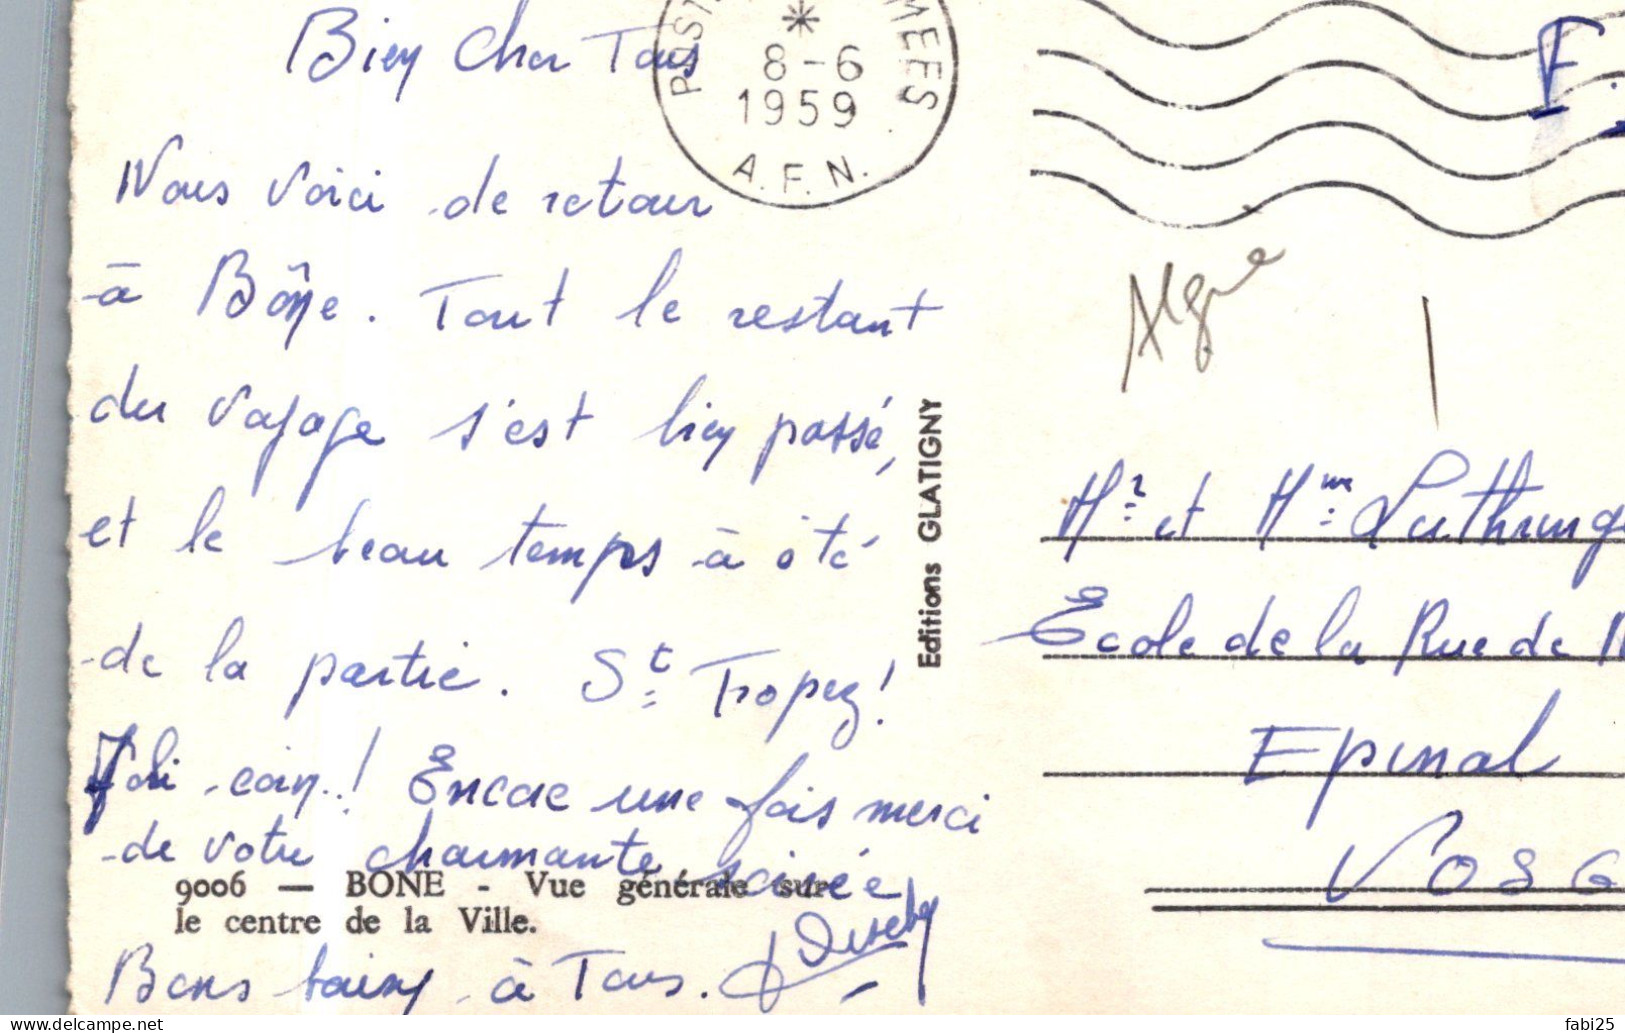 Bien Cher Tous
POST MEES
*
8-6
1959
A.F.N.
F.
Nous voici de retour
à Bône. Tout le restant
du voyage s'est bien passé,
et le beau temps à été
de la partie. St Tropez!
Joli coin! Encore une fois merci
de votre charmante soirée
9006 — BONE - Vue générale sur
le centre de la Ville.
Bons baisers à Tous.
Editions GLATIGNY
Algrie
Mr et Mme Luthringe
Ecole de la Rue de N
Epinal
VOSG
delcampe.net
fabi25